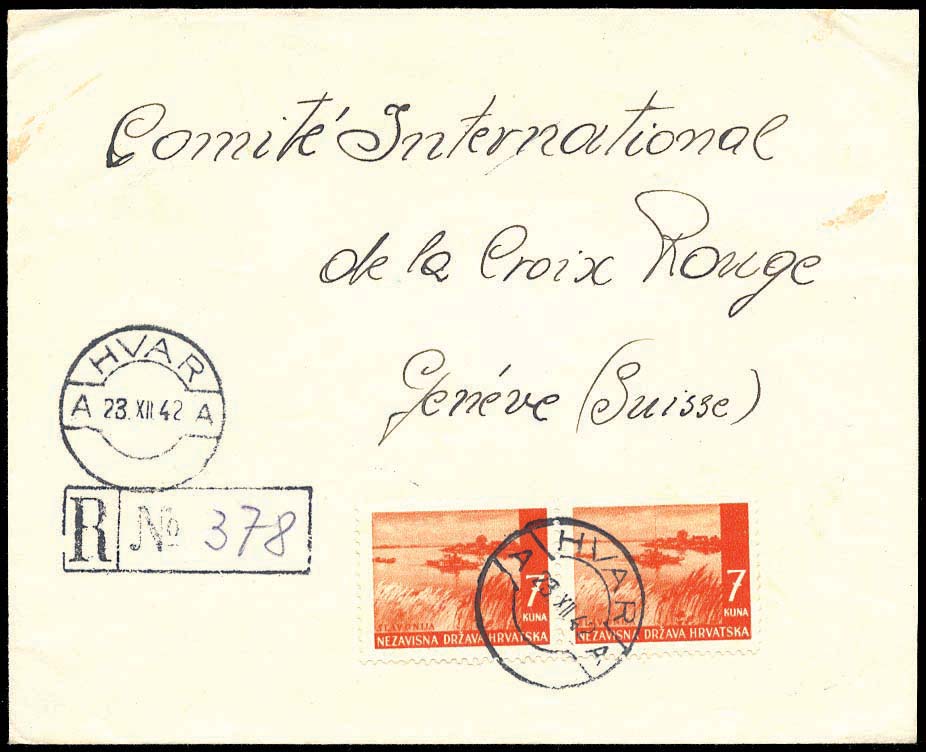 Comité International
de la Croix Rouge
Genéve (Suisse)
HVAR
A 23.XII.42 A
R No 378
HVAR
A 23.XII.42 A
7
KUNA
SLAVONIJA
NEZAVISNA DRŽAVA HRVATSKA
7
KUNA
NEZAVISNA DRŽAVA HRVATSKA